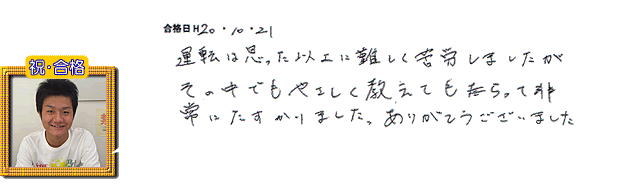 合格日 H20・10・21
運転は思った以上に難しく苦労しましたが
その中でもやさしく教えてもらって非
常にたすかりました。ありがとうございました
祝・合格